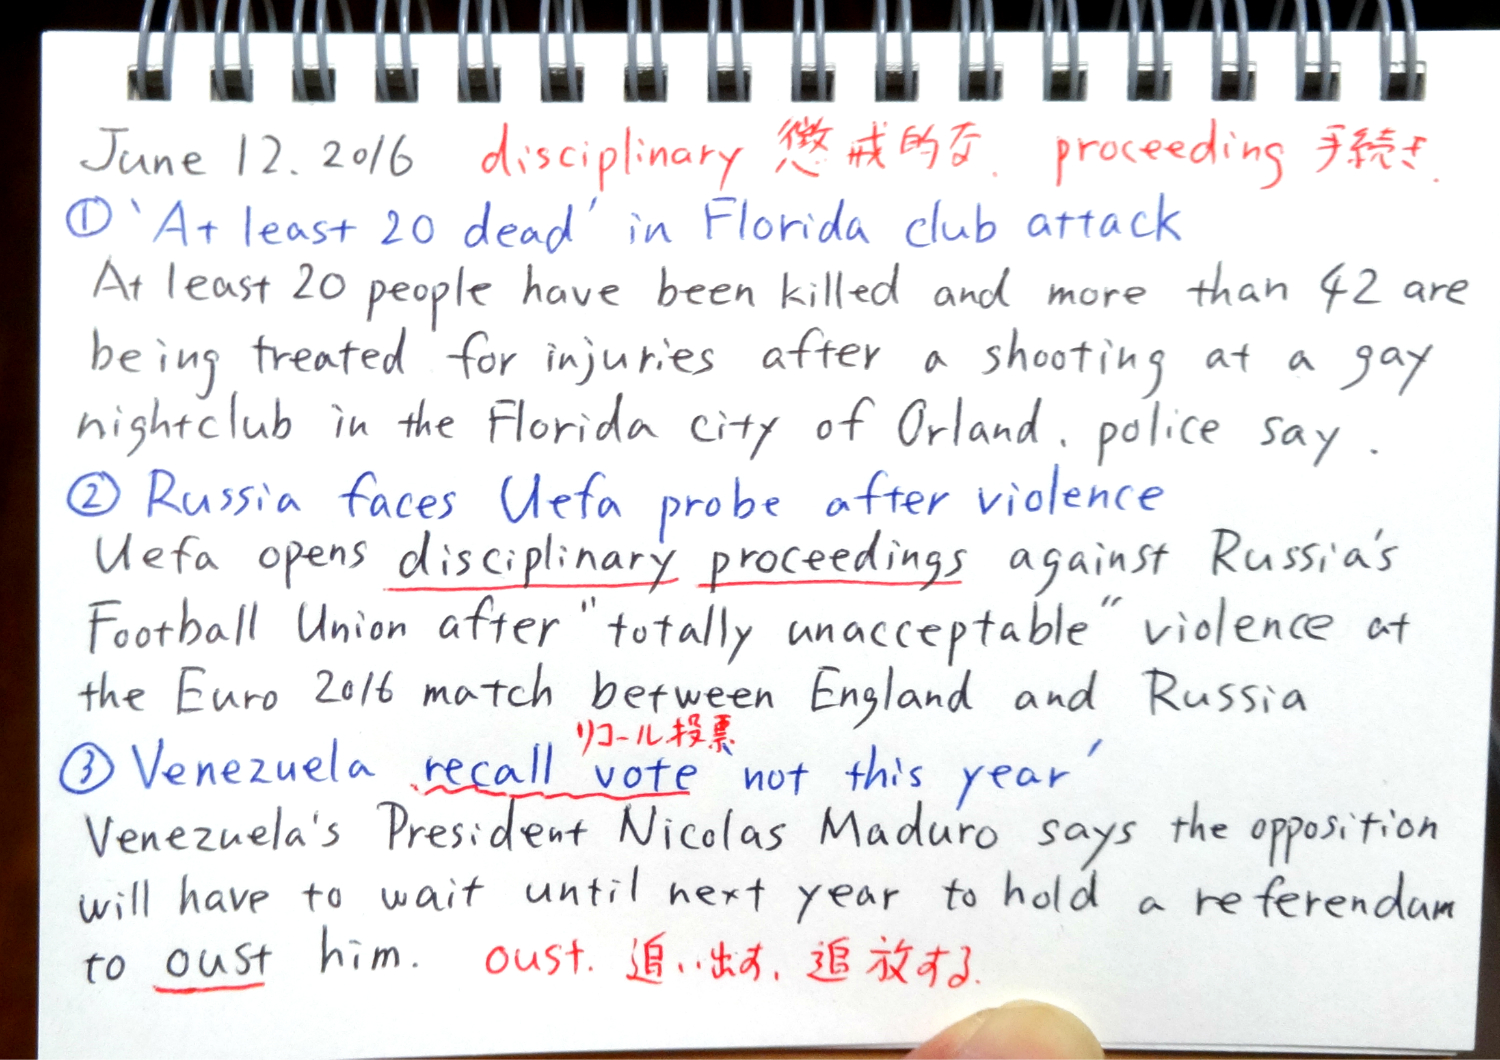 June 12. 2016 disciplinary 懲戒的な. proceeding 手続き.
① 'At least 20 dead' in Florida club attack
At least 20 people have been killed and more than 42 are
being treated for injuries after a shooting at a gay
nightclub in the Florida city of Orland, police say.
② Russia faces Uefa probe after violence
Uefa opens disciplinary proceedings against Russia's
Football Union after "totally unacceptable" violence at
the Euro 2016 match between England and Russia
リコール投票
③ Venezuela recall vote 'not this year'
Venezuela's President Nicolas Maduro says the opposition
will have to wait until next year to hold a referendum
to oust him. oust. 追い出す, 追放する.